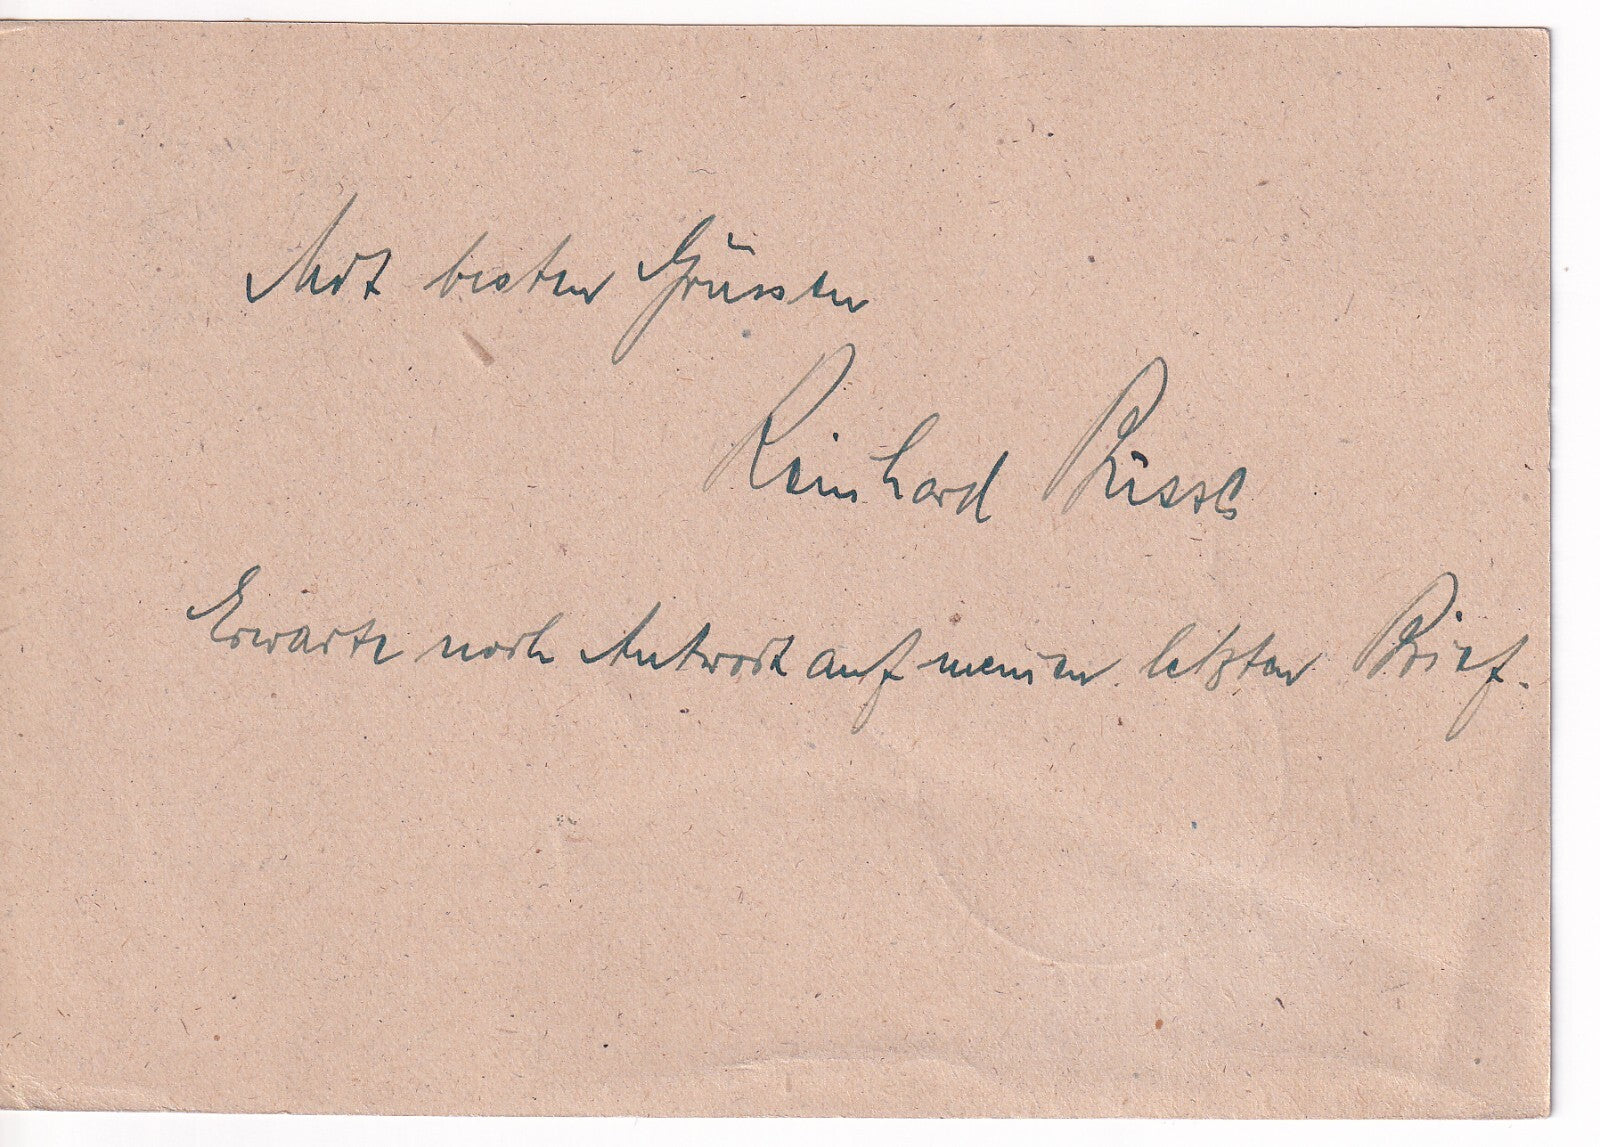 Mit besten Grüssen
Reinhard
Erwarte noch Antwort auf meinen letzten Brief.